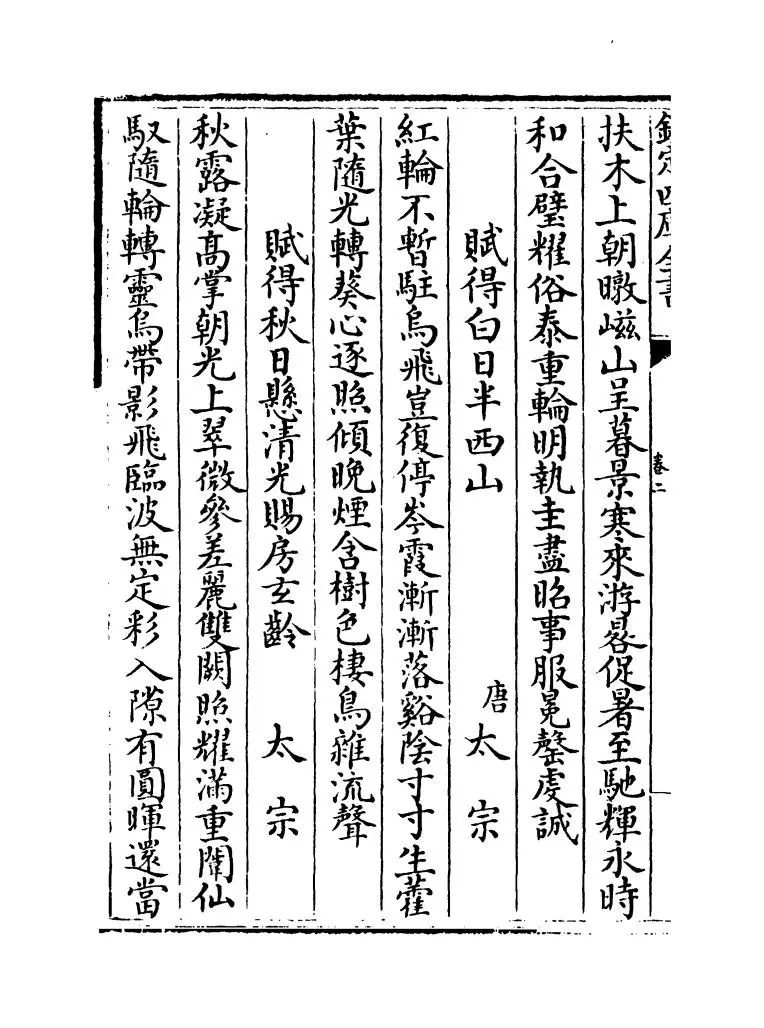 欽定四庫全書
卷二
扶木上朝暾㠿山呈暮景寒來游晷促暑至馳輝永時
和合璧耀俗泰重輪明執圭盡昭事服冕罄虔誠
賦得白日半西山 唐太宗
紅輪不暫駐烏飛豈復停岑霞漸漸落谿陰寸寸生藿
葉隨光轉葵心逐照傾晚煙含樹色棲鳥雜流聲
賦得秋日懸清光賜房玄齡 太宗
秋露凝髙掌朝光上翠微參差麗雙闕照耀滿重闈仙
馭隨輪轉靈烏帶影飛臨波無定彩入隙有圓暉還當